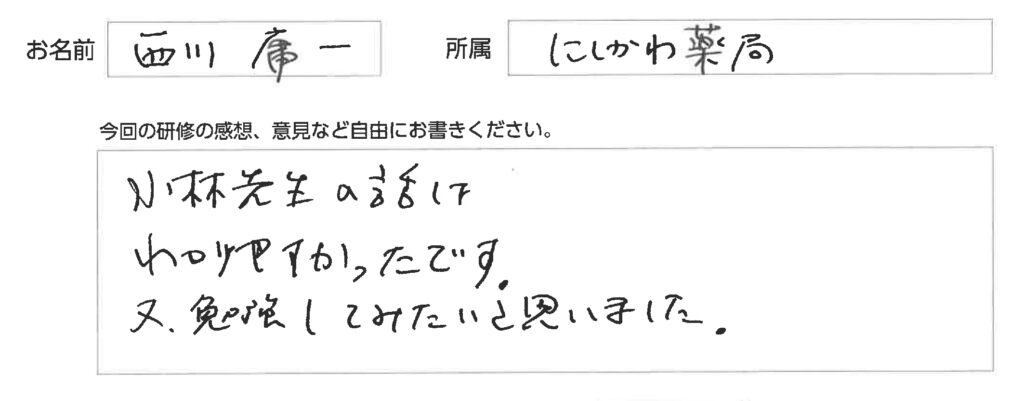 お名前 西川 庸一 所属 にしかわ薬局
今回の研修の感想、意見など自由にお書きください。
小林先生の話は
わかりやすかったです.
又、勉強してみたいと思いました.